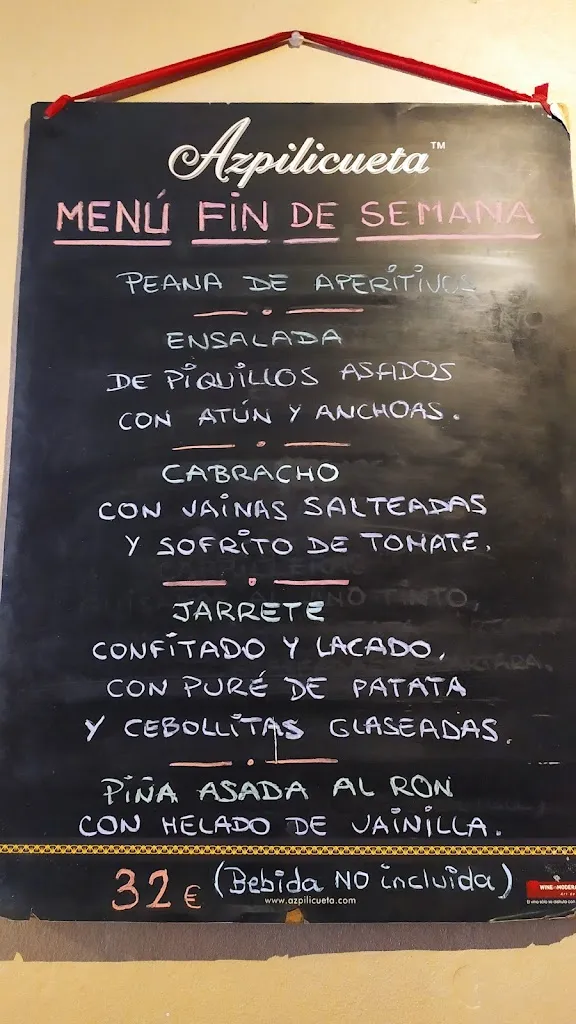 Azpilicueta™
MENÚ FIN DE SEMANA
PEANA DE APERITIVOS
ENSALADA
DE PIQUILLOS ASADOS
CON ATÚN Y ANCHOAS.
CABRACHO
CON VAINAS SALTEADAS
Y SOFRITO DE TOMATE.
JARRETE
CONFITADO Y LACADO,
CON PURÉ DE PATATA
Y CEBOLLITAS GLASEADAS.
PIÑA ASADA AL RON
CON HELADO DE VAINILLA.
32€ (Bebida NO incluida)
www.azpilicueta.com